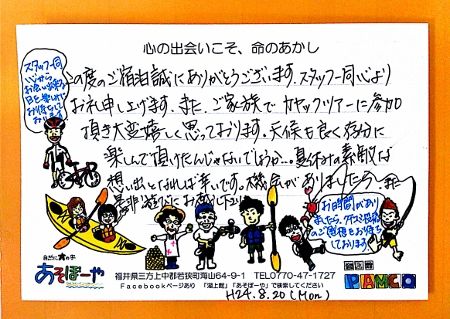 心の出会いこそ、命のあかし
この度のご宿泊誠にありがとうございます。スタッフ一同心より
お礼申し上げます。また、ご家族でカヤックツアーに参加
頂き大変嬉しく思っております。天候も良く存分に
楽しんで頂けたんじゃないでしょうか…。夏休みの素敵な
想い出となれば幸いです。機会がありましたら、また
是非遊びにお越し下さい
スタッフ一同
心から
お会い出来る
日を楽しみに
お待ちして
おります
お時間があり
ましたら、クチコミ投稿
のご協力をお待ち
しております
自然に食の宿
あそぼーや
福井県三方上中郡若狭町海山64-9-1 TEL0770-47-1727
Facebookページあり 「湖上館」「あそぼーや」で検索してください
湖上館
PAMCO
H24.8.20(Mon)